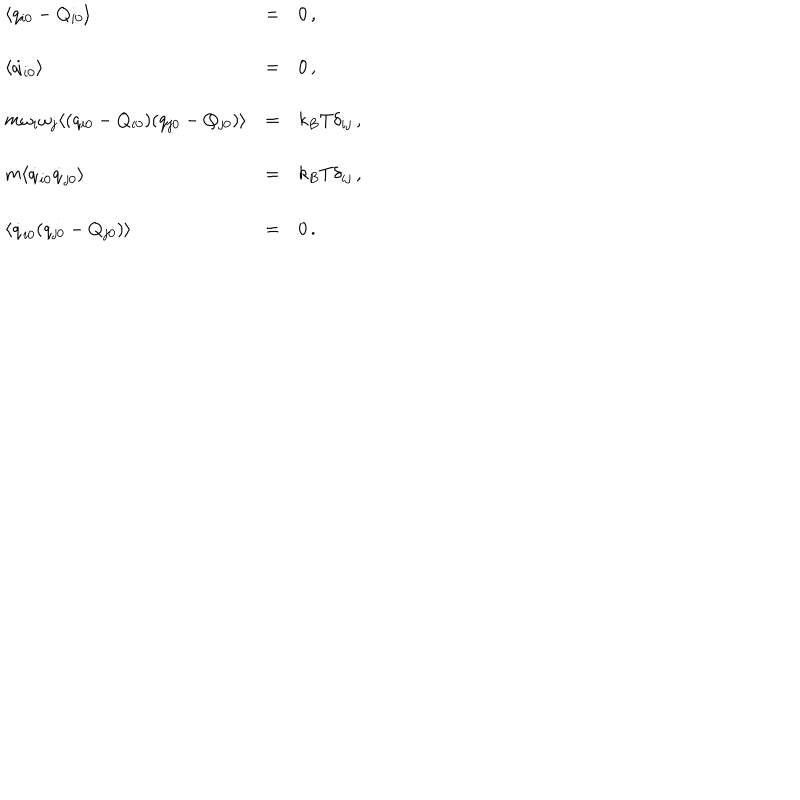 ⟨q_{i0} − Q_{i0}⟩ = 0 ,
⟨q̇_{i0}⟩ = 0 ,
mω_iω_j⟨(q_{i0} − Q_{i0})(q_{j0} − Q_{j0})⟩ = k_BTδ_{ij} ,
m⟨q̇_{i0}q̇_{j0}⟩ = k_BTδ_{ij} ,
⟨q̇_{i0}(q_{j0} − Q_{j0})⟩ = 0 .